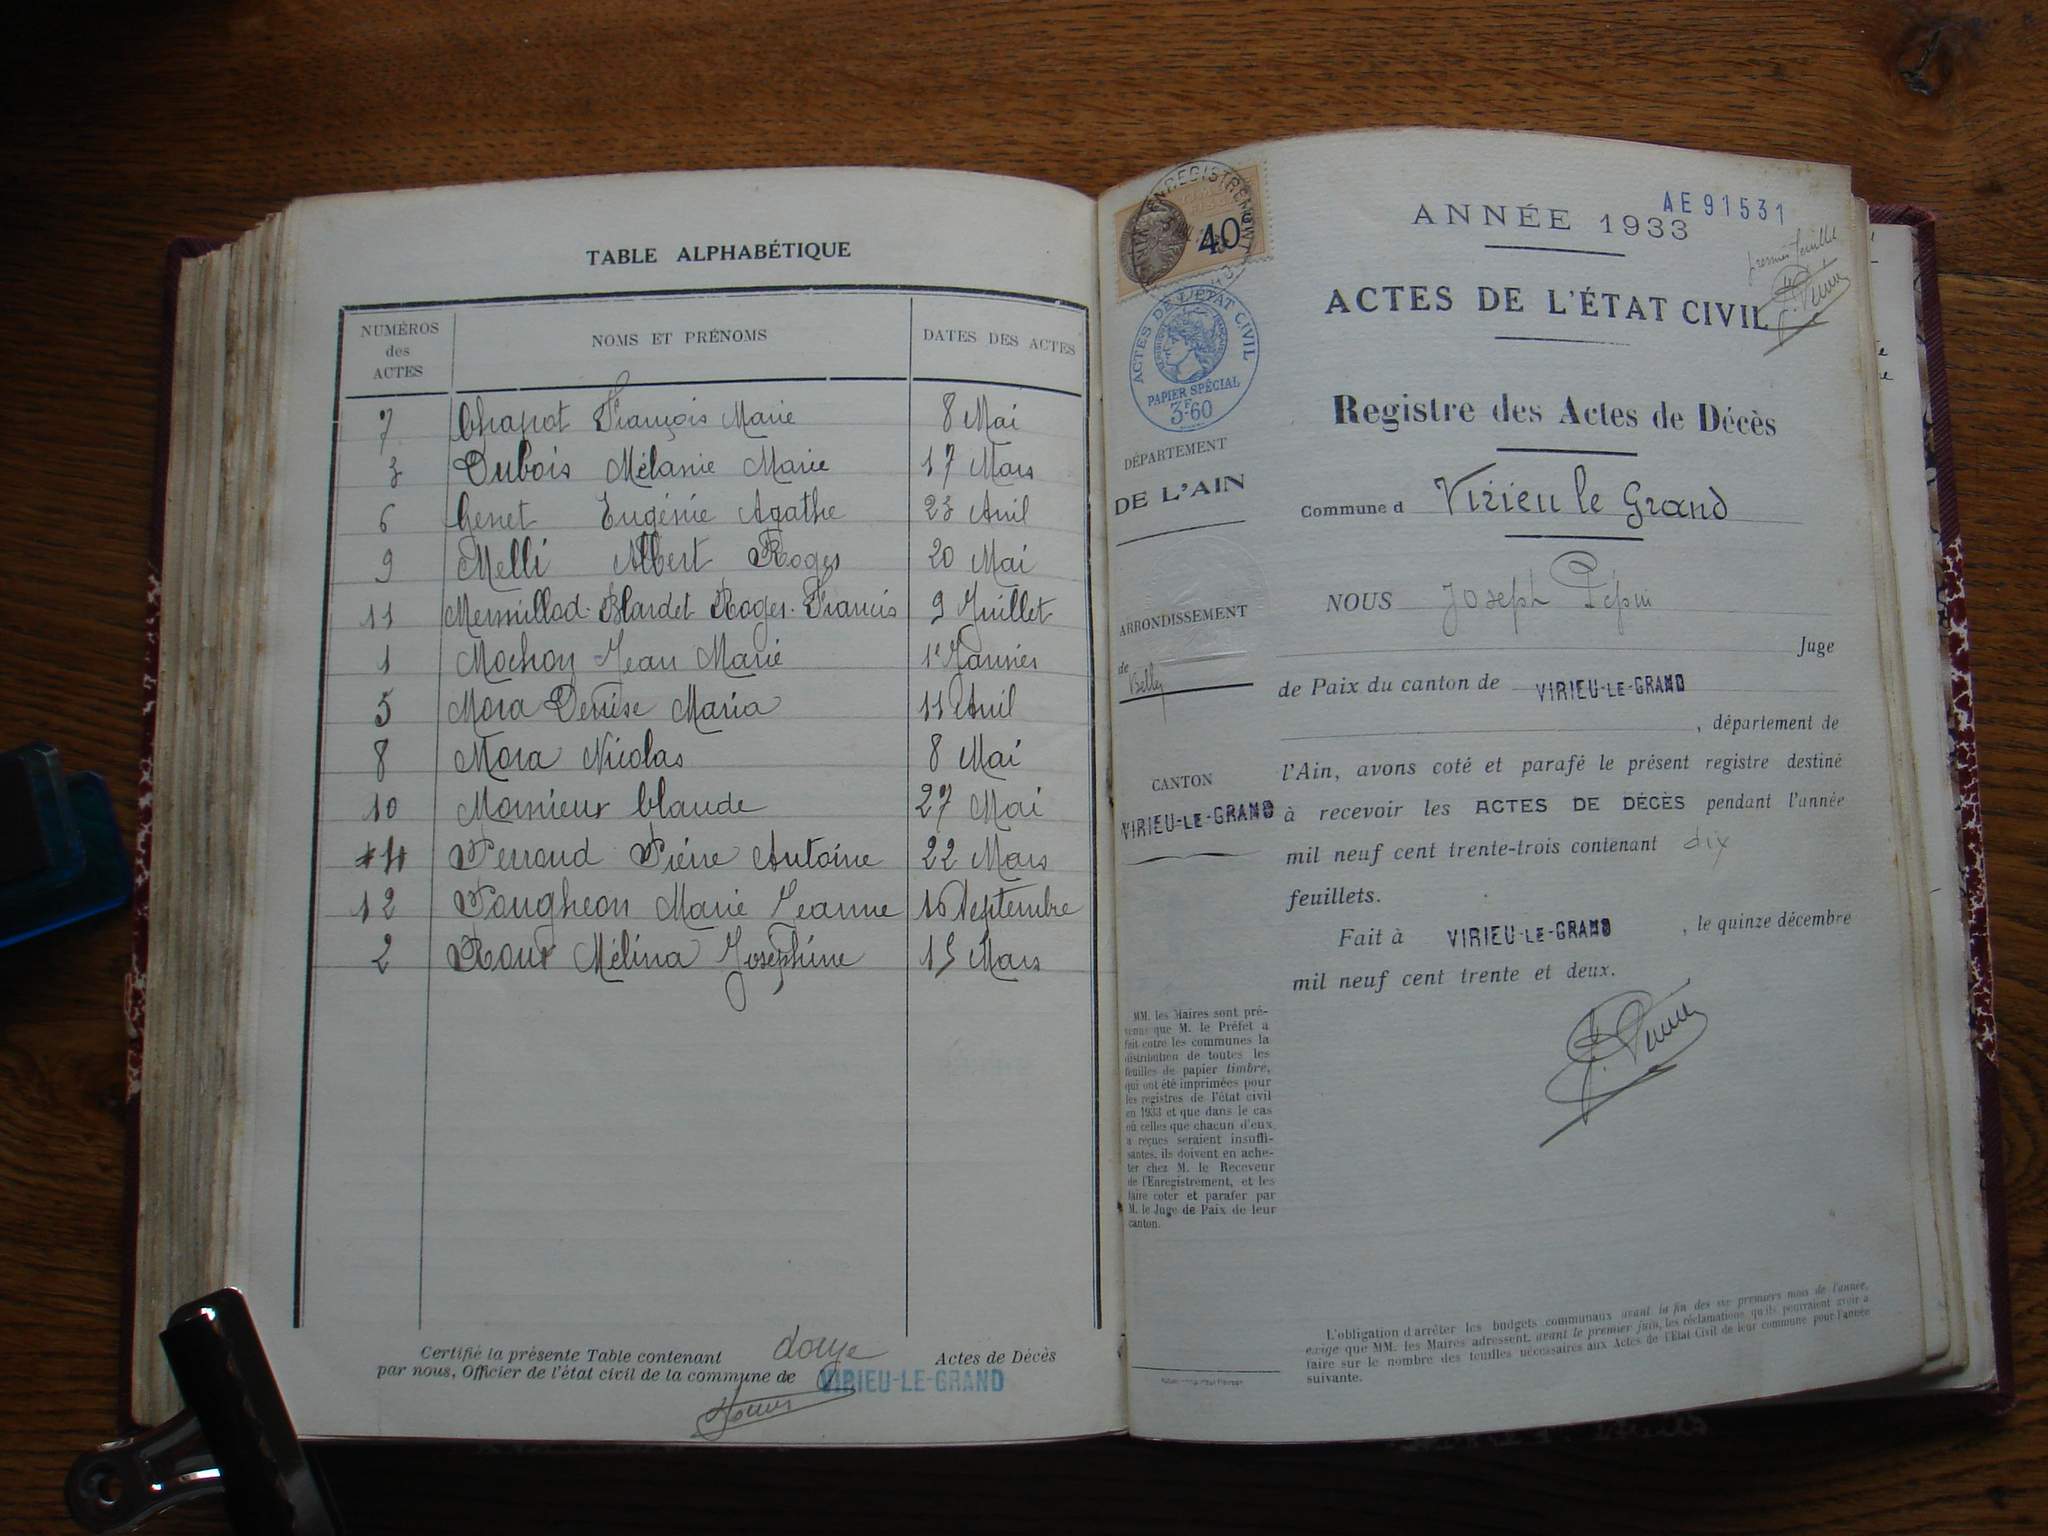 TABLE ALPHABÉTIQUE
NUMÉROS des ACTES NOMS ET PRÉNOMS DATES DES ACTES
7 Chapot François Marie 8 Mai
3 Dubois Mélanie Marie 17 Mars
6 Genet Eugénie Agathe 23 Avril
9 Melli Albert Roger 20 Mai
11 Mermillod-Blardet Roger-Francis 9 Juillet
1 Mochon Jean Marie 1er Janvier
5 Mora Denise Maria 11 Avril
8 Mora Nicolas 8 Mai
10 Mornieux Claude 27 Mai
4 Perraud Pierre Antoine 22 Mars
12 Pougheon Marie Jeanne 16 Septembre
2 Roux Mélina Joséphine 15 Mars
Certifié la présente Table contenant douze Actes de Décès
par nous, Officier de l'état civil de la commune de VIRIEU-LE-GRAND
ENREGISTREMENT
40
ACTES DE L'ÉTAT CIVIL
PAPIER SPÉCIAL
3F60
DÉPARTEMENT
DE L'AIN
ARRONDISSEMENT
de Belley
CANTON
VIRIEU-LE-GRAND
MM. les Maires sont pré-
venus que M. le Préfet a
fait entre les communes la
distribution de toutes les
feuilles de papier timbre,
qui ont été imprimées pour
les registres de l'état civil
en 1933 et que dans le cas
où celles que chacun d'eux
a reçues seraient insuffi-
santes, ils doivent en ache-
ter chez M. le Receveur
de l'Enregistrement, et les
faire coter et parafer par
M. le Juge de Paix de leur
canton.
AE 91531
ANNÉE 1933
premier feuillet
ACTES DE L'ÉTAT CIVIL
Registre des Actes de Décès
Commune d Virieu le Grand
NOUS Joseph Pépin
Juge
de Paix du canton de VIRIEU-LE-GRAND
, département de
l'Ain, avons coté et parafé le présent registre destiné
à recevoir les ACTES DE DÉCÈS pendant l'année
mil neuf cent trente-trois contenant dix
feuillets.
Fait à VIRIEU-LE-GRAND , le quinze décembre
mil neuf cent trente et deux.
L'obligation d'arrêter les budgets communaux avant la fin des six premiers mois de l'année,
exige que MM. les Maires adressent, avant le premier juin, les réclamations qu'ils pourraient avoir à
faire sur le nombre des feuilles nécessaires aux Actes de l'État Civil de leur commune pour l'année
suivante.